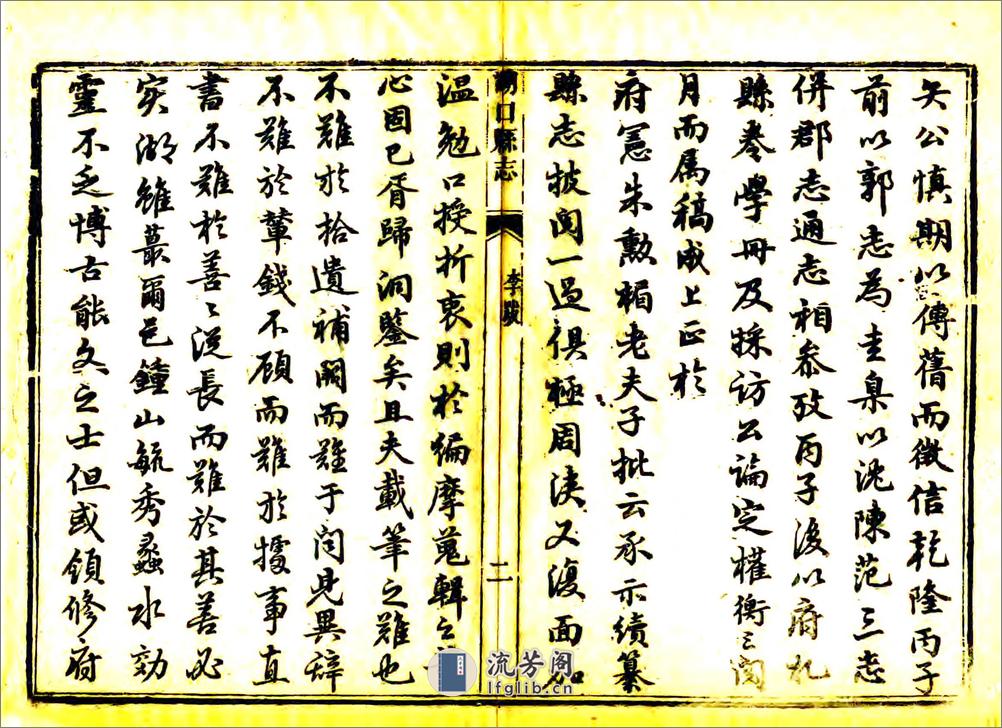 矢公慎期以傳舊而徵信乾隆丙子
前以郭志為圭臬以沈陳范三志
併郡志通志相參攷丙子後以府札
縣卷學冊及採訪公論定權衡三閱
月而属稿成上正於
府憲朱勲楣老夫子批云承示續纂
縣志披閱一過俱極周浹又復面加
湖口縣志
李跋
二
温勉口授折衷則於編摩蒐輯之
心固已胥歸洞鑒矣且夫載筆之難也
不難於拾遺補闕而難于問見異辭
不難於輦錢不顧而難於據事直
書不難於善善從長而難於其善必
实湖雖蕞爾邑鐘山毓秀蠡水効
靈不乏博古能文之士但或領修府
流芳阁
lfglib.cn